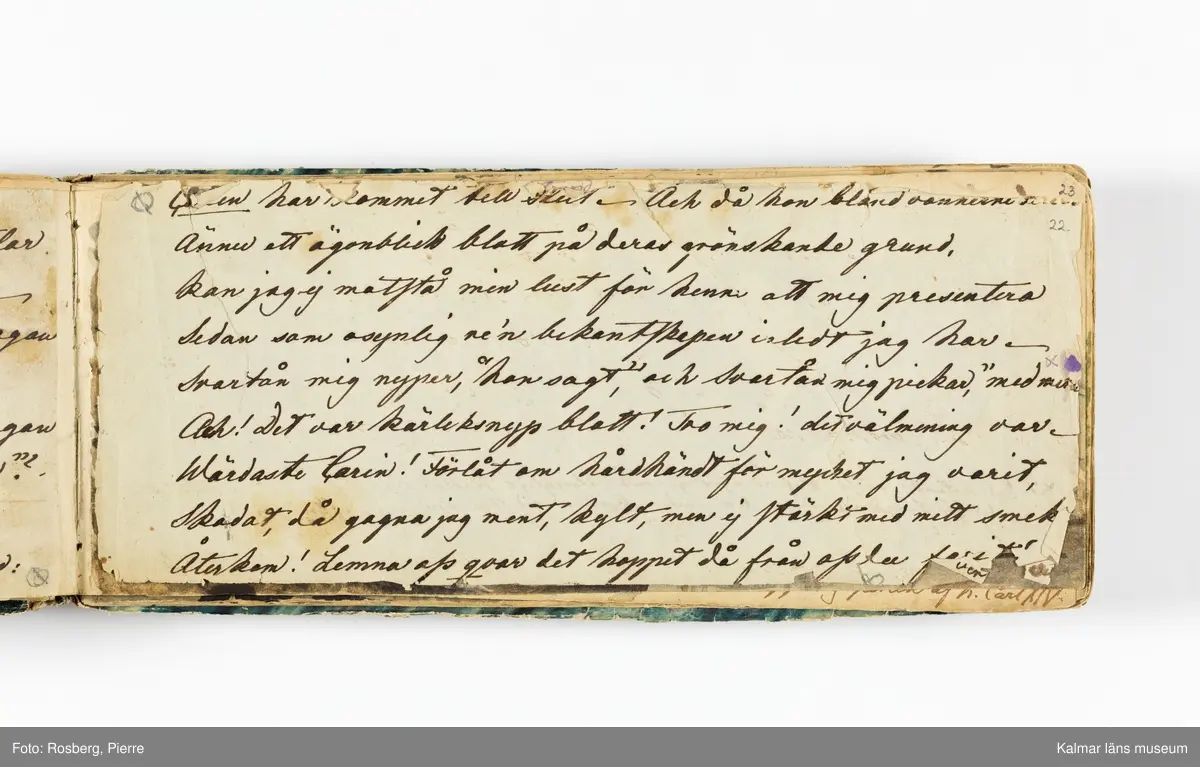 har kommet till slut – Ach då hon bland vännerne
23
22
Ännu ett ögonblick blott på deras grönskande grund,
lar.
kan jag ej motstå min lust för henne att mig presentera
Sedan som osynlig re'n bekantskapen inledt jag har –
gan
Svartån mig nyper, "hon sagt," och Svartån mig pickar, "med mera
Ach! Det var kärleksnyp blott! Tro mig! det välmening var –
gan
Wärdaste Carin! Förlåt om hårdhändt för mycket jag varit,
Skadat, då gagna jag ment, kylt, men ej stärkt med mitt smek
Återkom! Lemna oss qvar det hoppet då från oss du
af h. Carl XIV.
Foto: Rosberg, Pierre
Kalmar läns museum